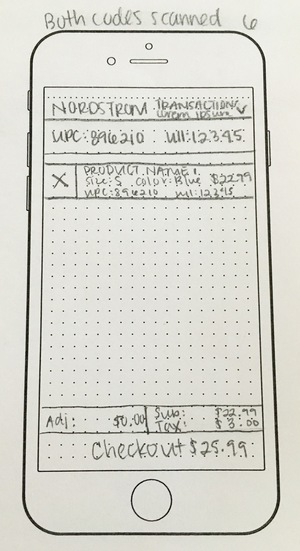 Both codes scanned 6
NORDSTROM TRANSACTION
Lorem Ipsum
UPC:896210 Wll:12345
X PRODUCT NAME
Size:S Color:Blue $22.99
UPC:896210 Wl:12345
Adj: $0.00 Sub: $22.99
Tax: $3.00
Checkout $25.99